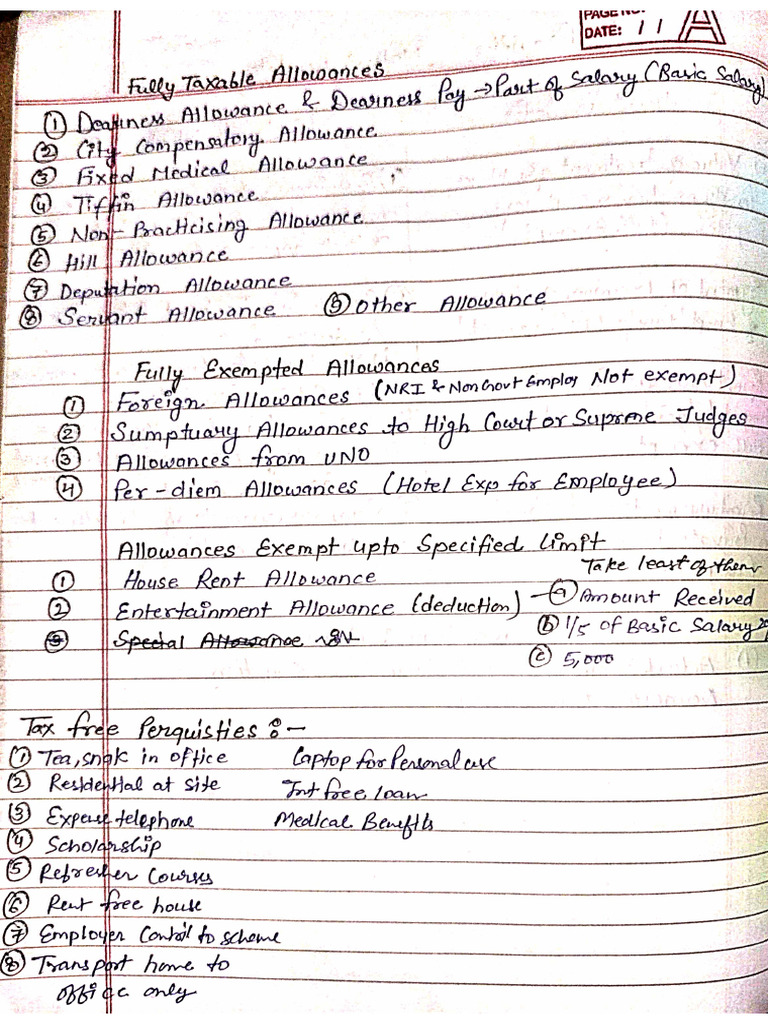 PAGE NO.
DATE: / /
A
Fully Taxable Allowances
① Dearness Allowance & Dearness Pay → Part of Salary (Basic Salary)
② City Compensatory Allowance
③ Fixed Medical Allowance
④ Tiffin Allowance
⑤ Non-Practicising Allowance
⑥ Hill Allowance
⑦ Deputation Allowance
⑧ Servant Allowance ⑨ Other Allowance
Fully Exempted Allowances
① Foreign Allowances (NRI & Non Govt Employ Not exempt)
② Sumptuary Allowances to High Court or Supreme Judges
③ Allowances from UNO
④ Per-diem Allowances (Hotel Exp for Employee)
Allowances Exempt upto Specified Limit
① House Rent Allowance Take least of them
② Entertainment Allowance (deduction) – ⓐ Amount Received
Special Allowance ⓑ 1/5 of Basic Salary
ⓒ 5,000
Tax free Perquisties :-
① Tea, snak in office Laptop for Personal use
② Residential at site Int free loan
③ Expense telephone Medical Benefits
④ Scholarship
⑤ Refresher Courses
⑥ Rent free house
⑦ Employer Contri to scheme
⑧ Transport home to
office only